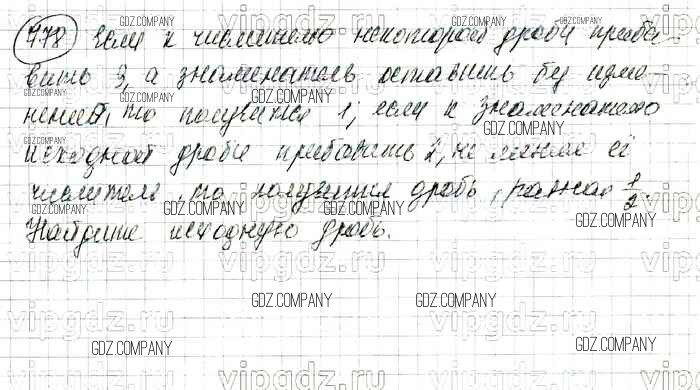 778 Если к числителю некоторой дроби приба-
вить 3, а знаменатель оставить без изме-
нений, то получится 1; если к знаменателю
исходной дроби прибавить 2, не меняя её
числитель, то получится дробь, равная 1/2.
Найдите исходную дробь.
GDZ.COMPANY
GDZ.COMPANY
GDZ.COMPANY
GDZ.COMPANY
GDZ.COMPANY
GDZ.COMPANY
GDZ.COMPANY
GDZ.COMPANY
GDZ.COMPANY
GDZ.COMPANY
GDZ.COMPANY
GDZ.COMPANY
GDZ.COMPANY
vipgdz.ru
vipgdz.ru
vipgdz.ru
vipgdz.ru
vipgdz.ru